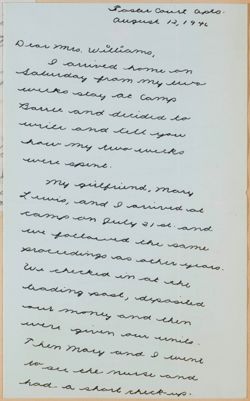 Foster Court Apts.
August 12, 1946
Dear Mrs. Williams,
I arrived home on
Saturday from my two
weeks stay at Camp
Barrie and decided to
write and tell you
how my two weeks
were spent.
My girlfriend, Mary
Lewis, and I arrived at
camp on July 21st. and
we followed the same
proceedings as other years.
We checked in at the
trading post, deposited
our money and then
were given our units.
Then Mary and I went
to see the nurse and
had a short check-up.